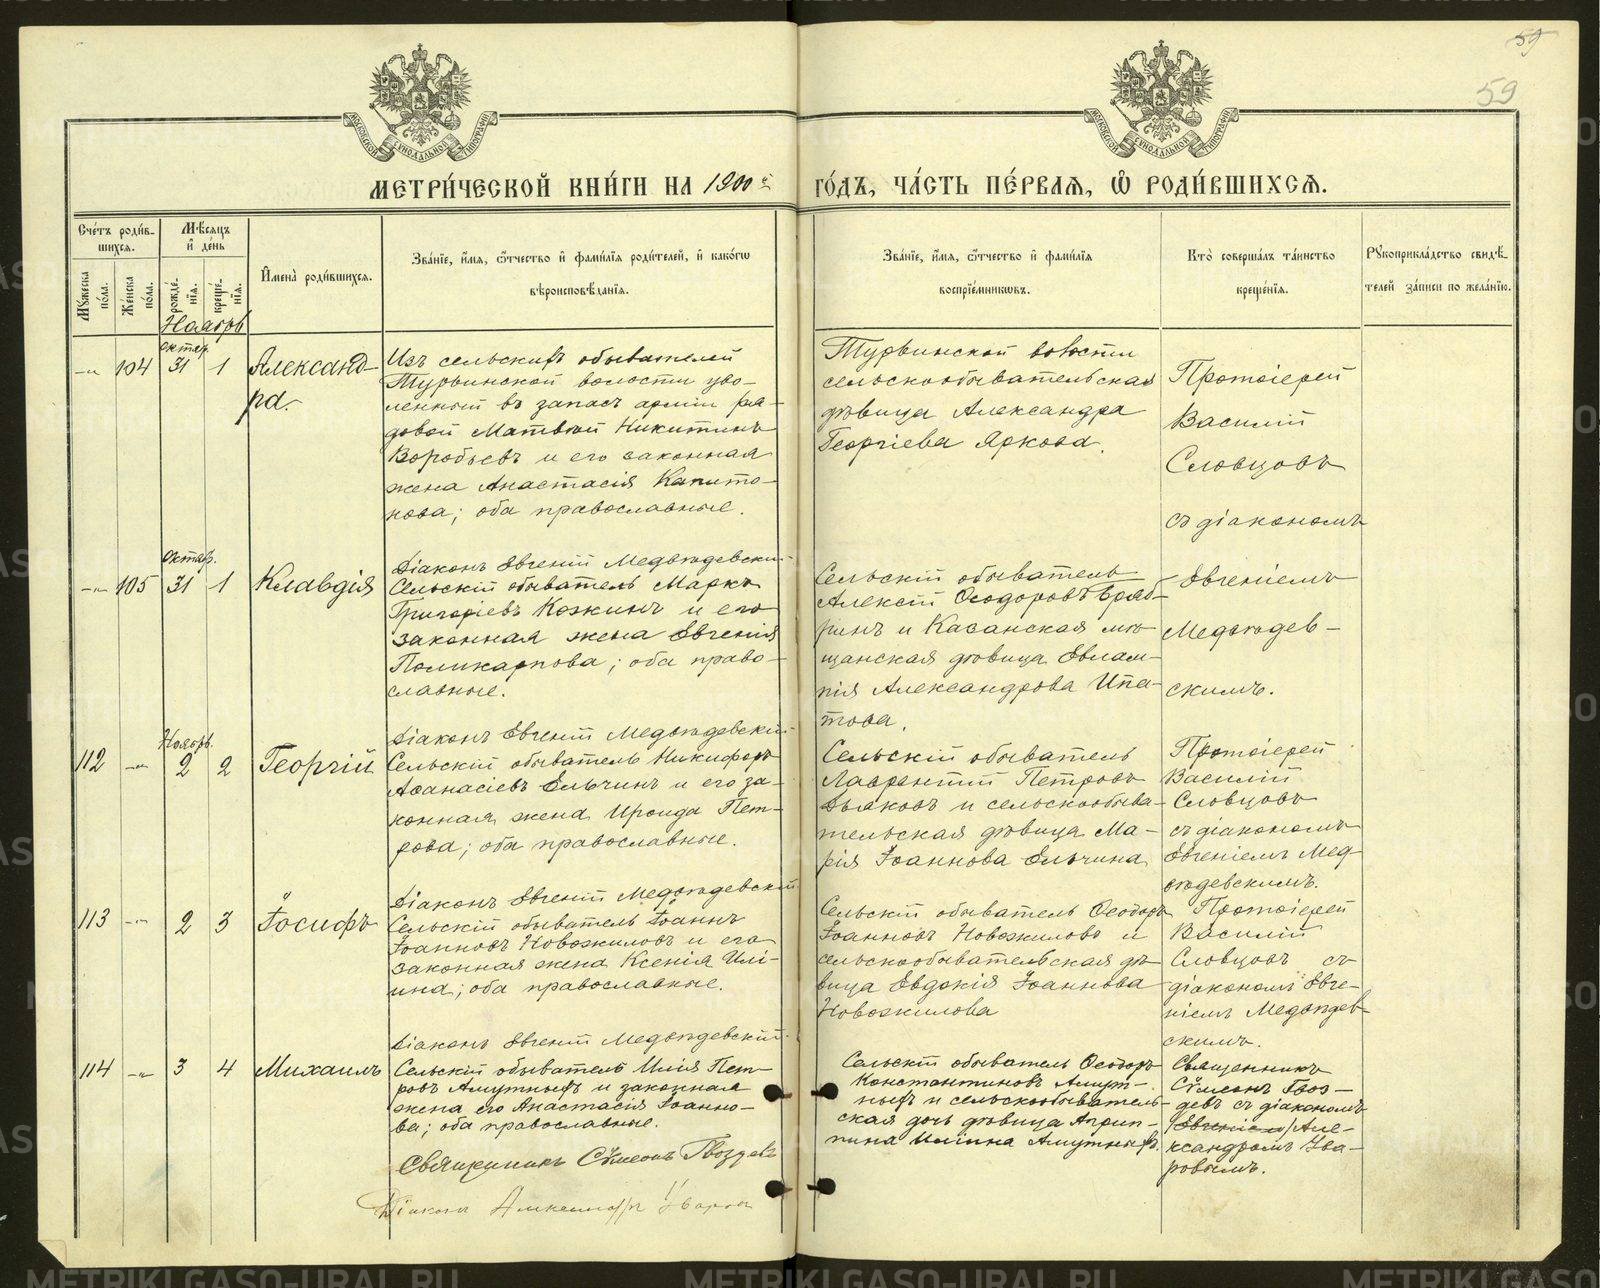 59
59
МЕТРИ́ЧЕСКОЙ КНИ́ГИ НА 1900 й
ГО́ДЪ, ЧА́СТЬ ПЕ́РВАЯ, Ѽ РОДИ́ВШИХСЯ.
Сче́тъ роди́в-
шихся.
Мꙋ́жеска
по́ла.
Же́нска
по́ла.
Мѣ́сяцъ
и҆ де́нь
рожде́-
нія.
креще́-
нія.
Ноябрь
И҆мена̀ роди́вшихся.
Зва́нїе, и҆́мя, ѻ҆́тчество и҆ фами́лїя роди́телей, и҆ како́гѡ
вѣроисповѣ́данїя.
Зва́нїе, и҆́мя, ѻ҆́тчество и҆ фами́лїя
воспрїе́мникѡвъ.
Кто̀ соверша́лъ та́инство
креще́нїя.
Рꙋкоприкла́дство свидѣ́-
телей за́писи по жела́нїю.
-"- 104
октяр.
31 1
Александ-
ра.
Изъ сельскихъ обывателей
Турьинской волости уво-
ленный въ запасъ армiи ря-
довой Матвѣй Никитинъ
Воробьевъ и его законная
жена Анастасія Капито-
нова; оба православные.
Турьинской волости
сельскообывательская
дѣвица Александра
Георгіева Яркова.
Протоіерей
Василій
Словцовъ
съ діакономъ
Діаконъ Евгеній Медвѣдевскій
-"- 105
октяр.
31 1
Клавдія
Сельскій обыватель Маркъ
Григоріевъ Кожинъ и его
законная жена Евгенія
Поликарпова; оба право-
славные.
Сельскій обыватель
Алексій Ѳеодоровъ
и Казанская мѣ-
щанская дѣвица Евлам-
пія Александрова Ипа-
това.
Евгеніемъ
Медвѣдев-
скимъ.
Діаконъ Евгеній Медвѣдевскій
112 -"-
Ноябрь.
2 2
Георгій
Сельскій обыватель Никифоръ
Аѳанасіевъ Ельчинъ и его за-
конная жена Ираида Пет-
рова; оба православные.
Сельскій обыватель
Лаврентій Петровъ
Дьяковъ и сельскообыва-
тельская дѣвица Ма-
рія Іоаннова Ельчина
Протоіерей
Василій
Словцовъ
съ діакономъ
Евгеніемъ Мед-
вѣдевскимъ.
Діаконъ Евгеній Медвѣдевскій
113 -"-
2 3
Іосифъ
Сельскій обыватель Іоаннъ
Іоанновъ Новожиловъ и его
законная жена Ксенія Илі-
ина; оба православные.
Сельскій обыватель Ѳеодоръ
Іоанновъ Новожиловъ и
сельскообывательская дѣ-
вица Евдокія Іоаннова
Новожилова
Протоіерей
Василій
Словцовъ съ
діакономъ Евге-
ніемъ Медвѣдев-
скимъ.
Діаконъ Евгеній Медвѣдевскій
114 -"-
3 4
Михаилъ
Сельскій обыватель Илія Пет-
ровъ Амутныхъ и законная
жена его Анастасія Іоанно-
ва; оба православные.
Сельскій обыватель Ѳеодоръ
Константиновъ Амут-
ныхъ и сельскообыватель-
ская дочь дѣвица Агрип-
пина Иліина Амутныхъ.
Священникъ
Сѵмеонъ Гвоз-
девъ съ діакономъ
(Евгеніем) Але-
ксандромъ Ува-
ровымъ.
Священникъ Сѵмеонъ Гвоздевъ
Діаконъ Александръ Уваровъ
METRIKI.GASO-URAL.RU